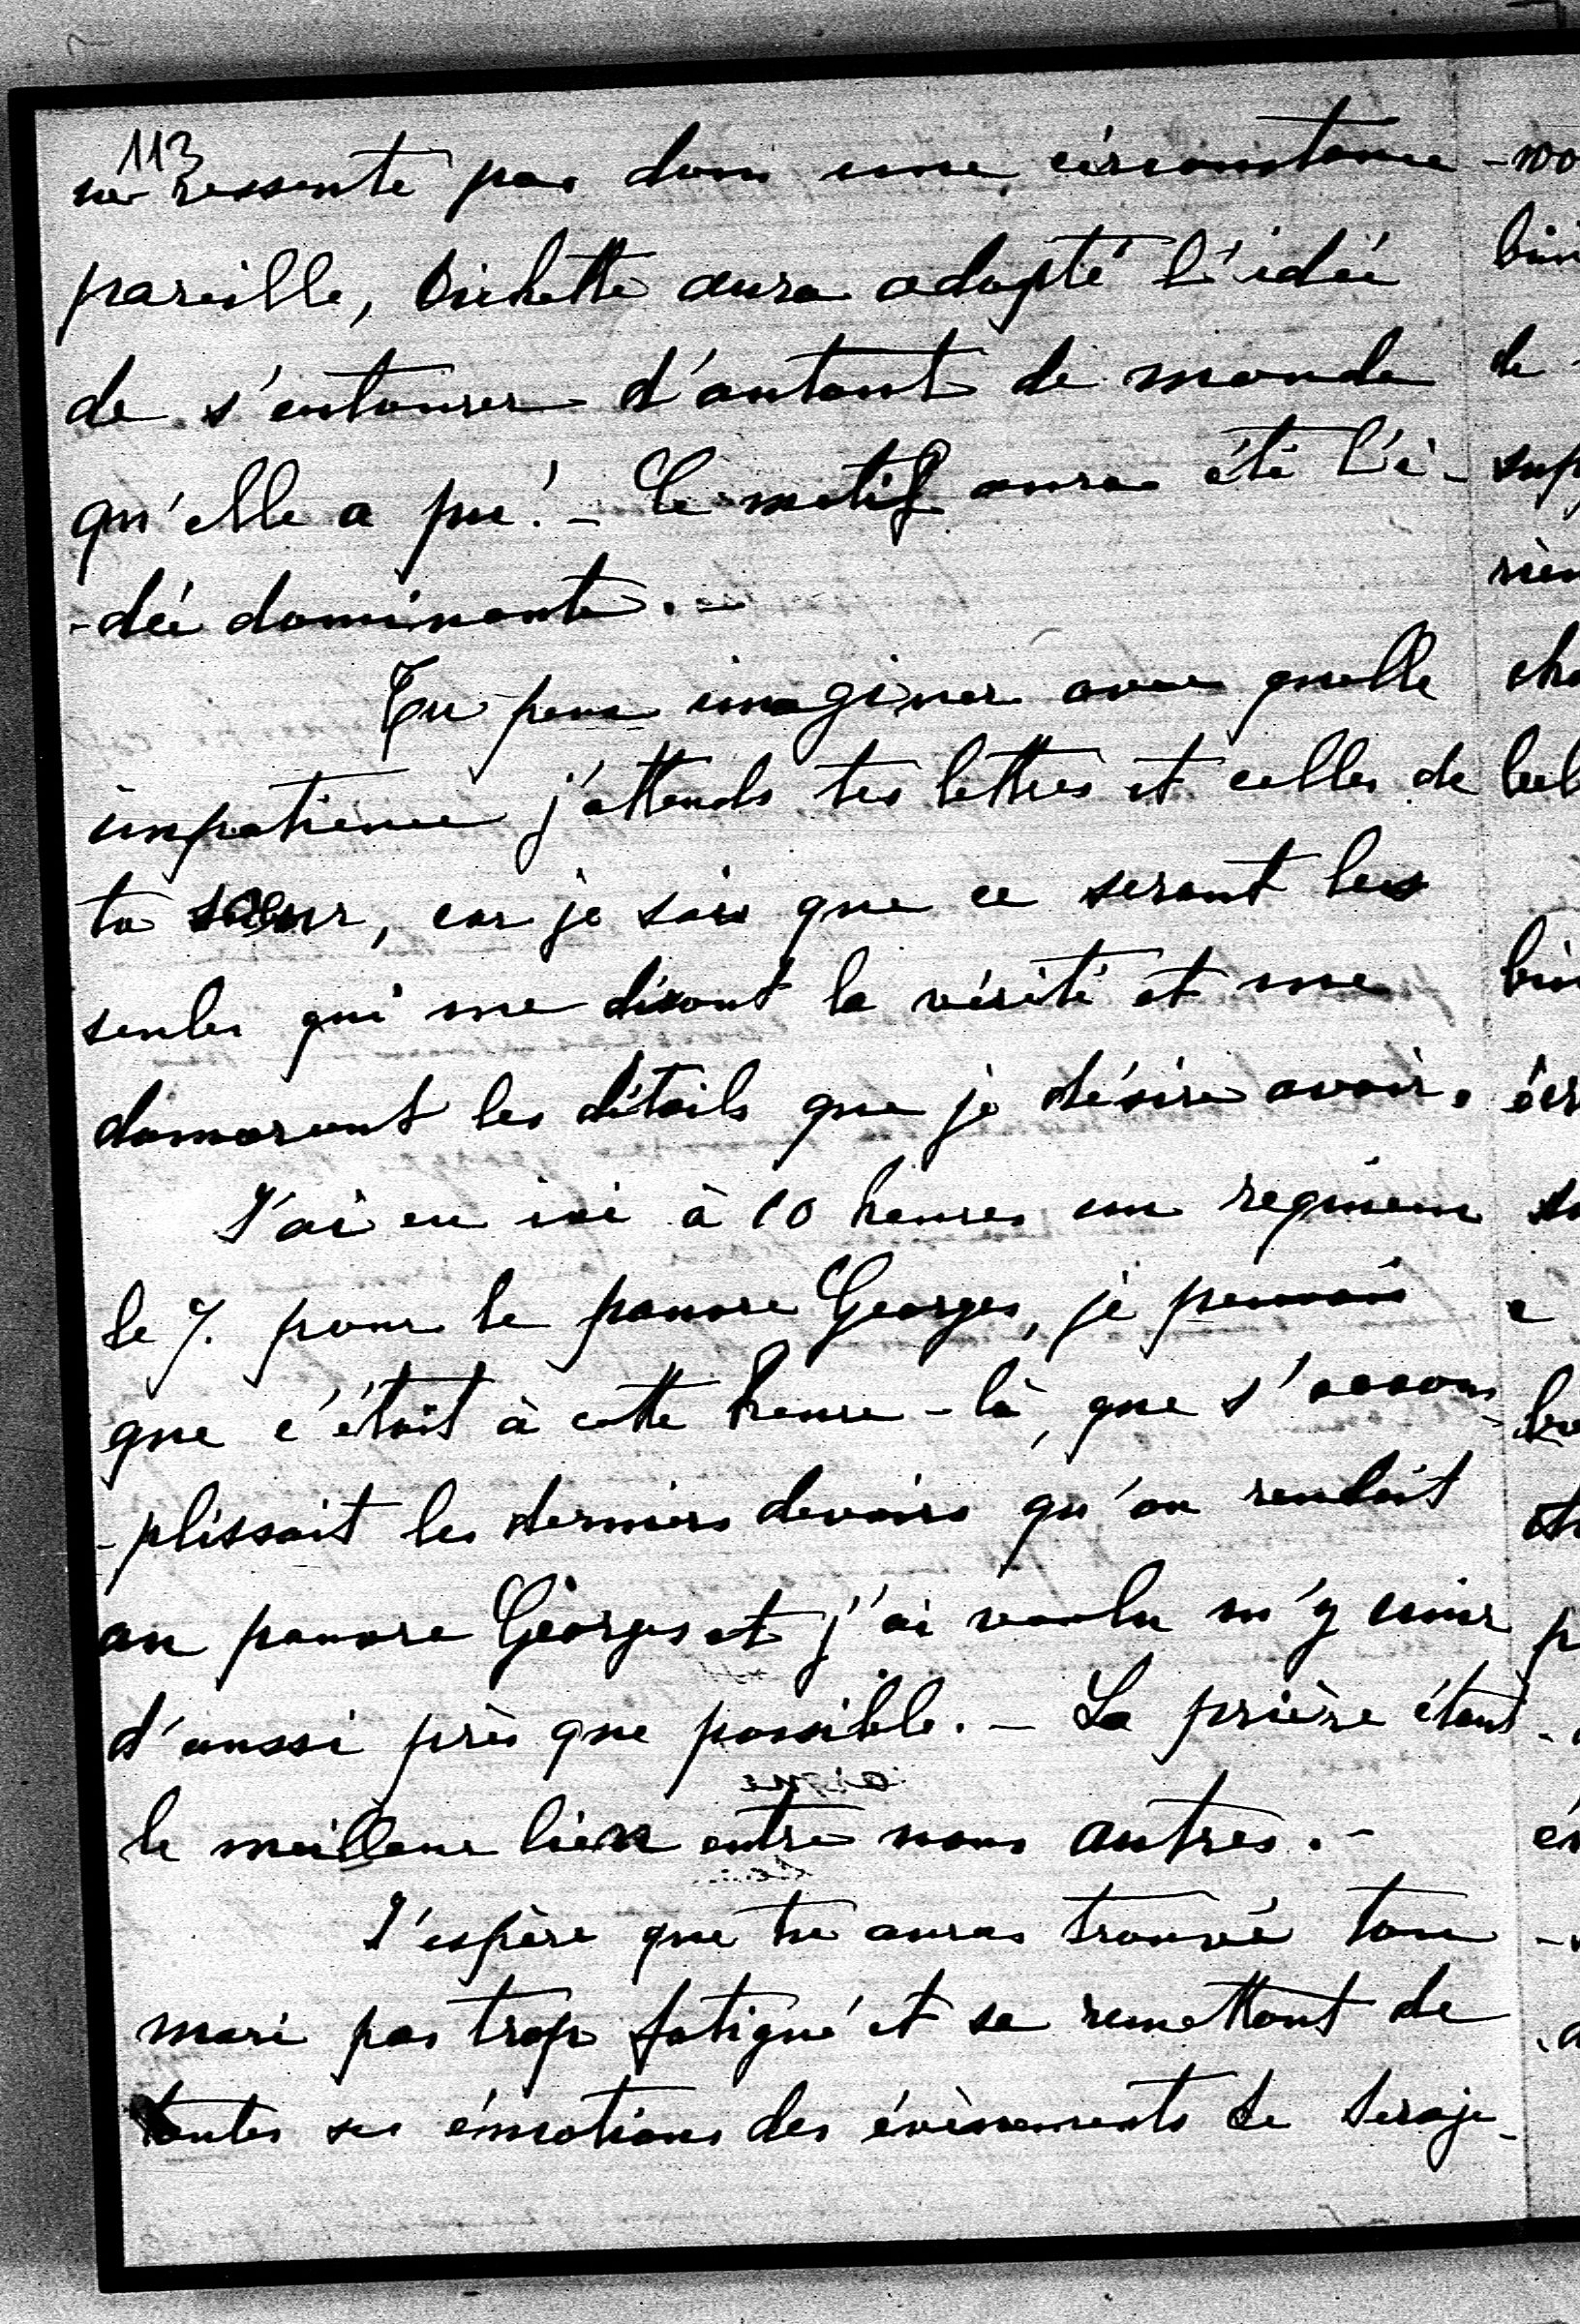 113
ne ressente pas dans une circonstance
pareille, Bichette aura adopté l'idée
de s'entourer d'autant de monde
qu'elle a pu! - Ce motif aura été l'i-
-dée dominante. -
Tu peux imaginer avec quelle
impatience j'attends tes lettres et celles de
ta sœur, car je sais que ce seront les
seules qui me diront la vérité et me
donneront les détails que je désire avoir.
J'ai eu ici à 10 heures un requiem
le 7. pour le pauvre Georges, je pensais
que c'étoit à cette heure-là, que s'accom-
-plissait les derniers devoirs qu'on rendait
au pauvre Georges et j'ai voulu m'y unir
d'aussi près que possible. - La prière étant
le meilleur lien entre nous autres. -
J'espère que tu auras trouvé ton
mari pas trop fatigué et se remettant de
toutes ses émotions des évènements de Seraje-